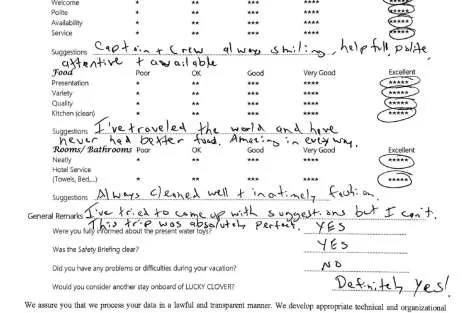 Welcome * ** *** **** *****
Polite * ** *** **** *****
Availability * ** *** **** *****
Service * ** *** **** *****
Suggestions Captain + Crew always smiling, helpfull, polite,
attentive + available
Food Poor OK Good Very Good Excellent
Presentation * ** *** **** *****
Variety * ** *** **** *****
Quality * ** *** **** *****
Kitchen (clean) * ** *** **** *****
Suggestions I've traveled the world and have
never had better food. Amazing in every way.
Rooms/ Bathrooms Poor OK Good Very Good Excellent
Neatly * ** *** **** *****
Hotel Service
(Towels, Bed,...) * ** *** **** *****
Suggestions Always cleaned well + in a timely fashion
General Remarks I've tried to come up with suggestions but I can't.
This trip was absolutely perfect.
Were you fully informed about the present water toys? YES
Was the Safety Briefing clear? YES
Did you have any problems or difficulties during your vacation? NO
Would you consider another stay onboard of LUCKY CLOVER? Definitely Yes!
We assure you that we process your data in a lawful and transparent manner. We develop appropriate technical and organizational